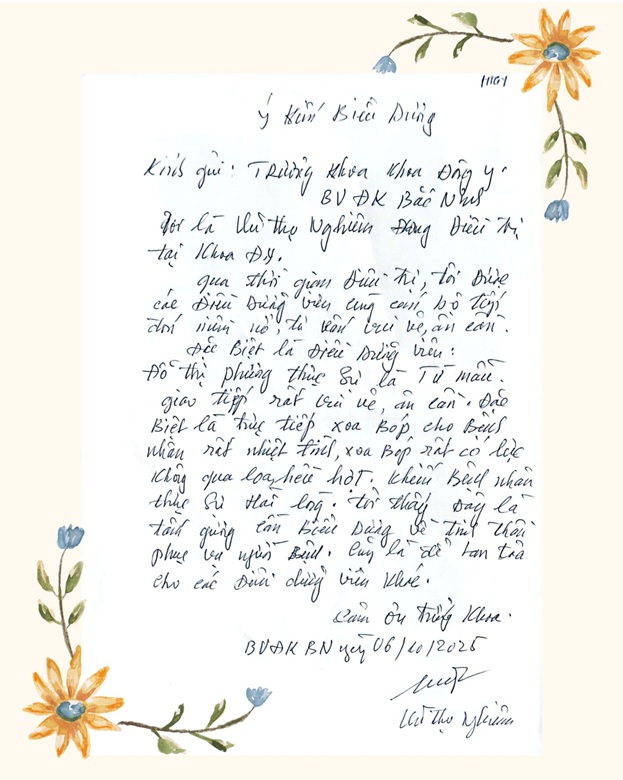 Ý kiến Biểu Dương
Kính gửi: Trưởng khoa Khoa Đông y.
BVĐK Bắc Ninh
Tôi là Thọ Nghiêm Đang Điều Trị
tại Khoa ĐY.
qua thời gian Điều trị, tôi Được
các Điều Dưỡng viên cùng cán bộ tiếp
đón niềm nở, tư vấn vui vẻ, ân cần.
Đặc Biệt là Điều Dưỡng viên:
Đỗ thị phương thực sự là Từ mẫu.
giao tiếp rất vui vẻ, ân cần. Đặc
Biệt là trực tiếp xoa Bóp cho Bệnh
nhân rất nhiệt tình, xoa Bóp rất có lực
không qua loa, hời hợt. Khiến Bệnh nhân
thực sự Hài lòng. tôi thấy Đây là
tấm gương cần Biểu Dương về tinh thần
phục vụ người Bệnh. Cũng là để lan toả
cho các Điều dưỡng viên khác.
Cảm ơn trưởng khoa.
BVĐK BN ngày 06/10/2025
Thọ Nghiêm